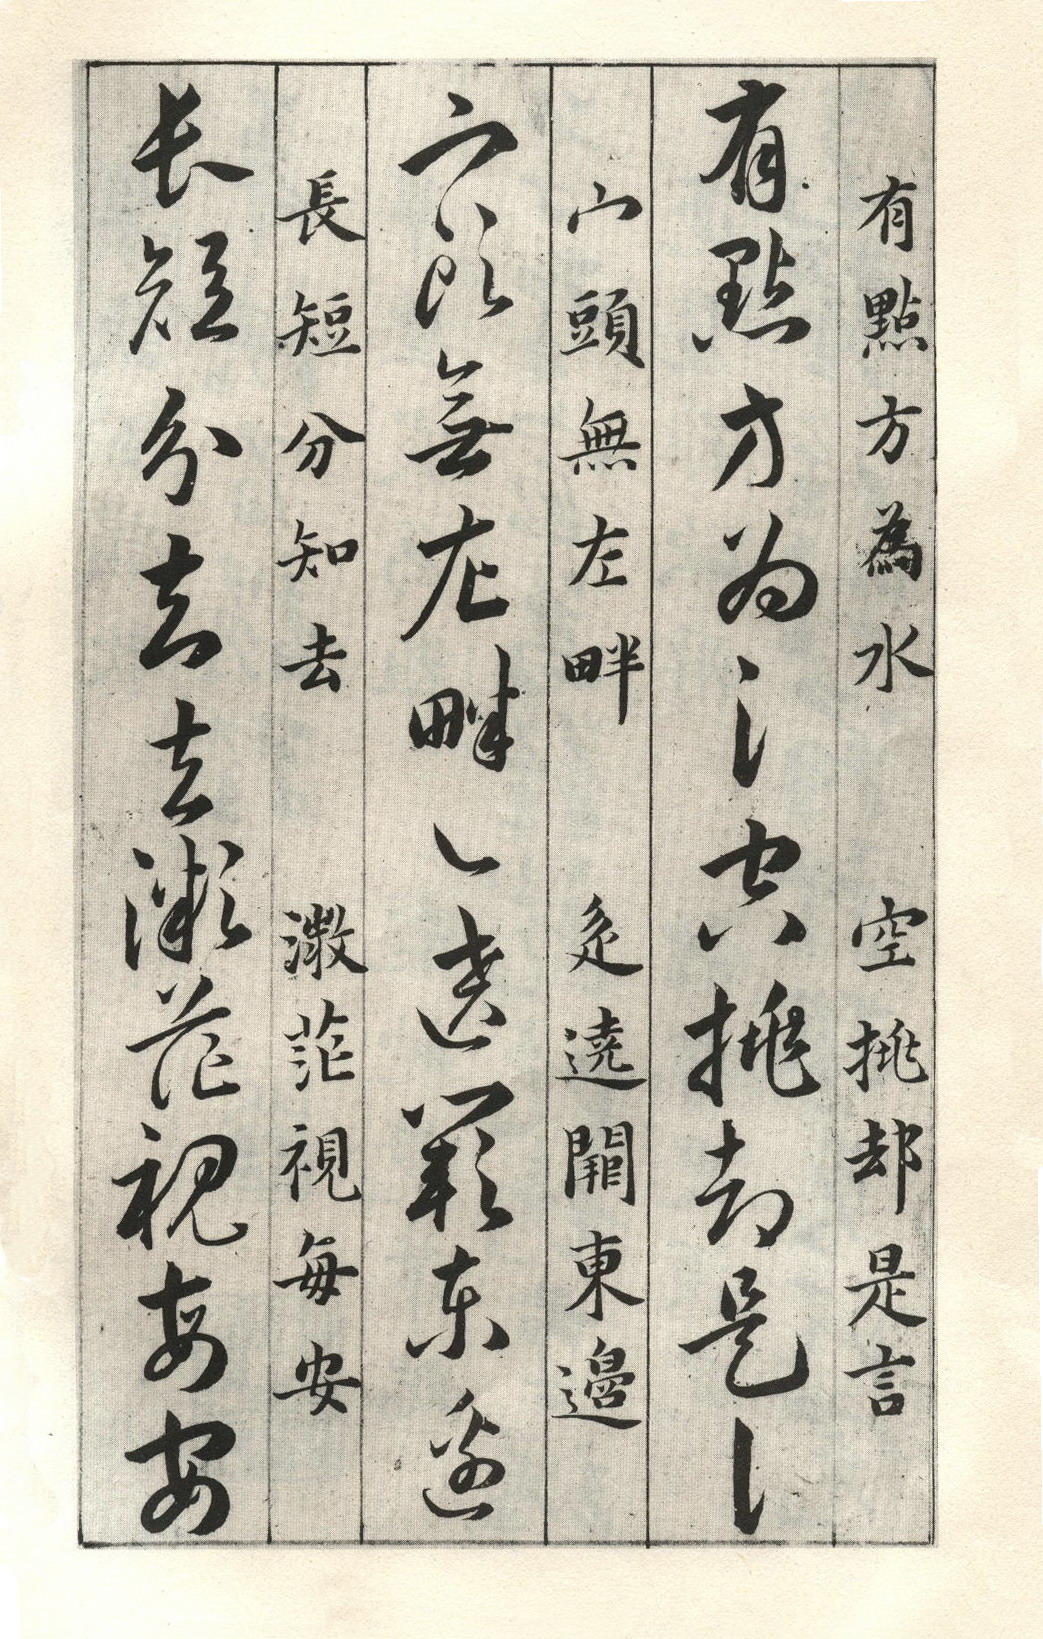 有點方為水 空挑却是言
有點方為氵空挑却是讠
宀頭無左畔 辵遶闕東邊
宀頭無左畔辶遶闕東邊
長短分知去 微茫視每安
長短分去去微茫視每安